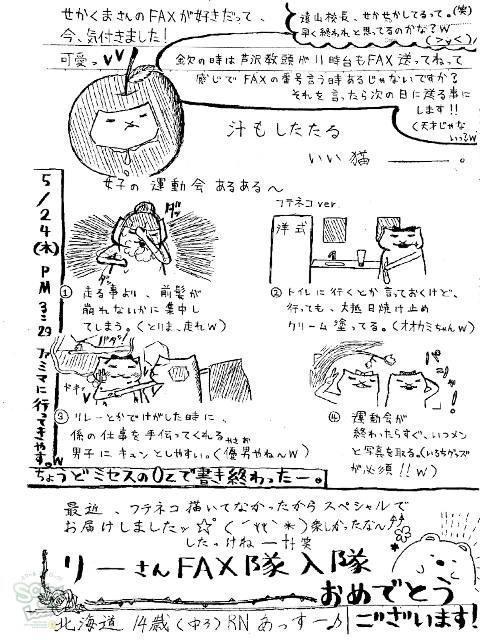 せかくまさんのFAXが好きだって、
今、気付きました!
可愛っ♥♥
遠山校長、せかせかしてるって。(笑)
早く終われと思ってるのかな?w
金欠の時は芦沢教頭が11時台もFAX送ってねって
感じでFAXの番号言う時あるじゃないですか?
それを言ったら次の日に送る事に
します!!
(天才じゃな
汁もしたたる
いい猫―――。
女子の運動会あるある〜
フテネコver.
5/24(木) PM 3:29 ファミマに行ってきやす。w
ダッ
洋式
① 走る事より、前髪が
崩れないかに集中し
てしまう。(とりま、走れw)
② トイレに行くとか言っておくけど、
行っても、大抵日焼け止め
クリーム塗ってる。(オオカミちゃんw)
バタン!
ドキッ
パシャ!
③ リレーとかでけがした時に、
係の仕事を手伝ってくれる
男子にキュンとしやすい。(優男やねんw)
④ 運動会が
終わったらすぐ、いつメン
と写真を取る。(いるちグッズ
が必須!! w)
ちょうどミセスのOzで書き終わったー。
最近、フテネコ描いてなかったからスペシャルで
お届けしましたッ☆ 楽しかったなん♪
したっけねー 笑
りーさんFAX隊入隊
おめでとう
ございます!
北海道 14歳(中3) RN あっすー♪